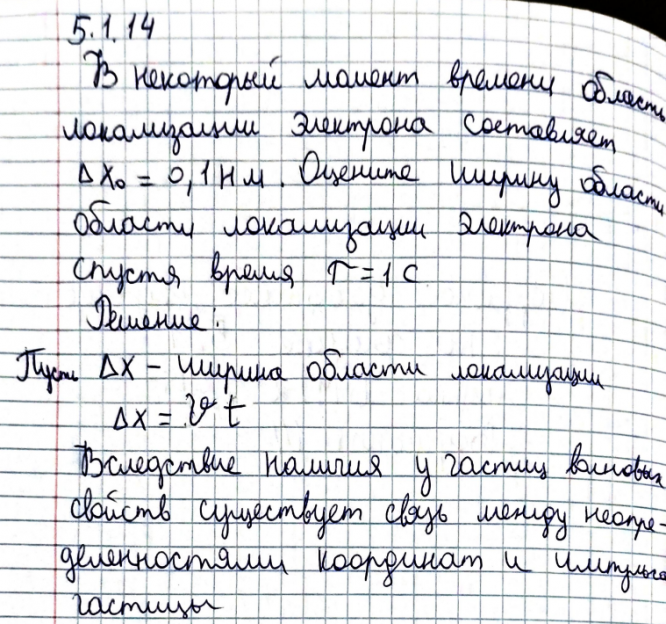 5.1.14
В некоторый момент времени область
локализации электрона составляет
Δx₀ = 0,1 нм. Оцените ширину области
области локализации электрона
спустя время τ = 1 с
Решение:
Пусть Δx – ширина области локализации
Δx = υt
Вследствие наличия у частиц волновых
свойств существует связь между неопре-
деленностями координат и импульса
частицы